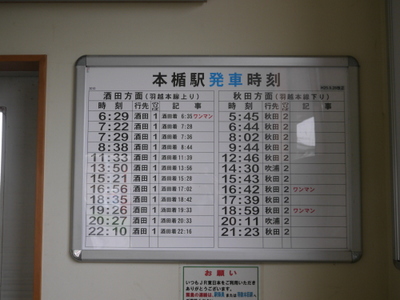 本楯駅発車時刻
酒田方面(羽越本線上り)
時刻 行先 記事
6:29 酒田 1 酒田着 6:35 ワンマン
7:22 酒田 1 酒田着 7:28
7:29 酒田 1 酒田着 7:36
8:38 酒田 1 酒田着 8:44
11:33 酒田 1 酒田着 11:39
13:50 酒田 1 酒田着 13:56
15:21 酒田 1 酒田着 15:28
16:56 酒田 1 酒田着 17:02
18:35 酒田 1 酒田着 18:42
19:26 酒田 1 酒田着 19:33
20:27 酒田 1 酒田着 20:33
22:10 酒田 1 酒田着 22:16
秋田方面(羽越本線下り)
時刻 行先 記事
5:45 秋田 2
6:44 秋田 2
8:02 秋田 2
9:44 秋田 2
12:46 秋田 2
14:30 吹浦 2
15:43 秋田 2
16:42 秋田 2 ワンマン
17:39 秋田 2
18:59 秋田 2 ワンマン
20:11 吹浦 2
21:23 秋田 2
お願い
いつもJR東日本をご利用いただき
ありがとうございます。